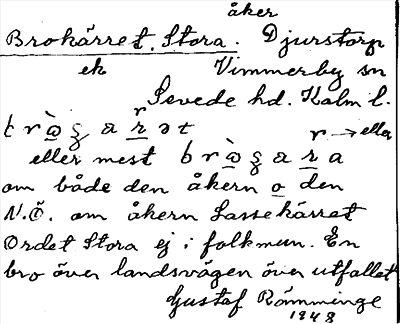 åker
Brokärret, Stora. Djurstorp
ek Vimmerby sn
Sevede hd. Kalm l.
r → eller
eller mest
om både den åkern o den
N.Ö. om åkern Lassekärret
Ordet Stora ej i folkmun. En
bro över landsvägen över utfallet
Gustaf Römminge
1948